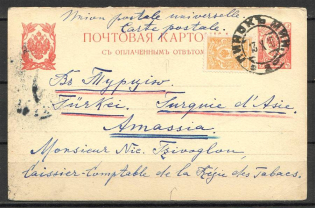 Union postale universelle
Carte postale.
ПОЧТОВАЯ КАРТО
СЪ ОПЛАЧЕННЫМЪ ОТВѢТОМЪ
Въ Турцiю
Türkei Turquie d'Asie.
Amassia
Monsieur Nic. Tzivoglou,
Caissier-Comptable de la Régie des Tabacs.